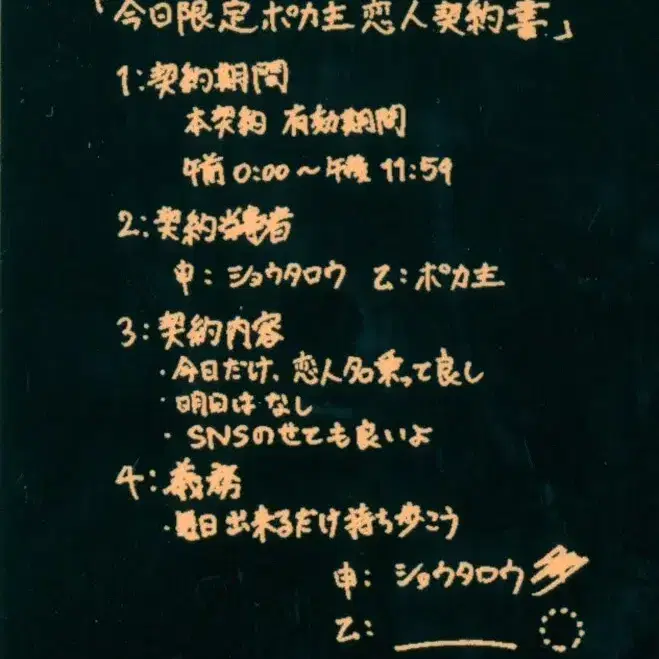 「今日限定ポカ主恋人契約書」
1:契約期間
本契約 有効期間
午前 0:00～午後 11:59
2:契約当事者
申:ショウタロウ 乙:ポカ主
3:契約内容
・今日だけ、恋人名乗って良し
・明日はなし
・SNSのせても良いよ
4:義務
・毎日出来るだけ持ち歩こう
申:ショウタロウ
乙: